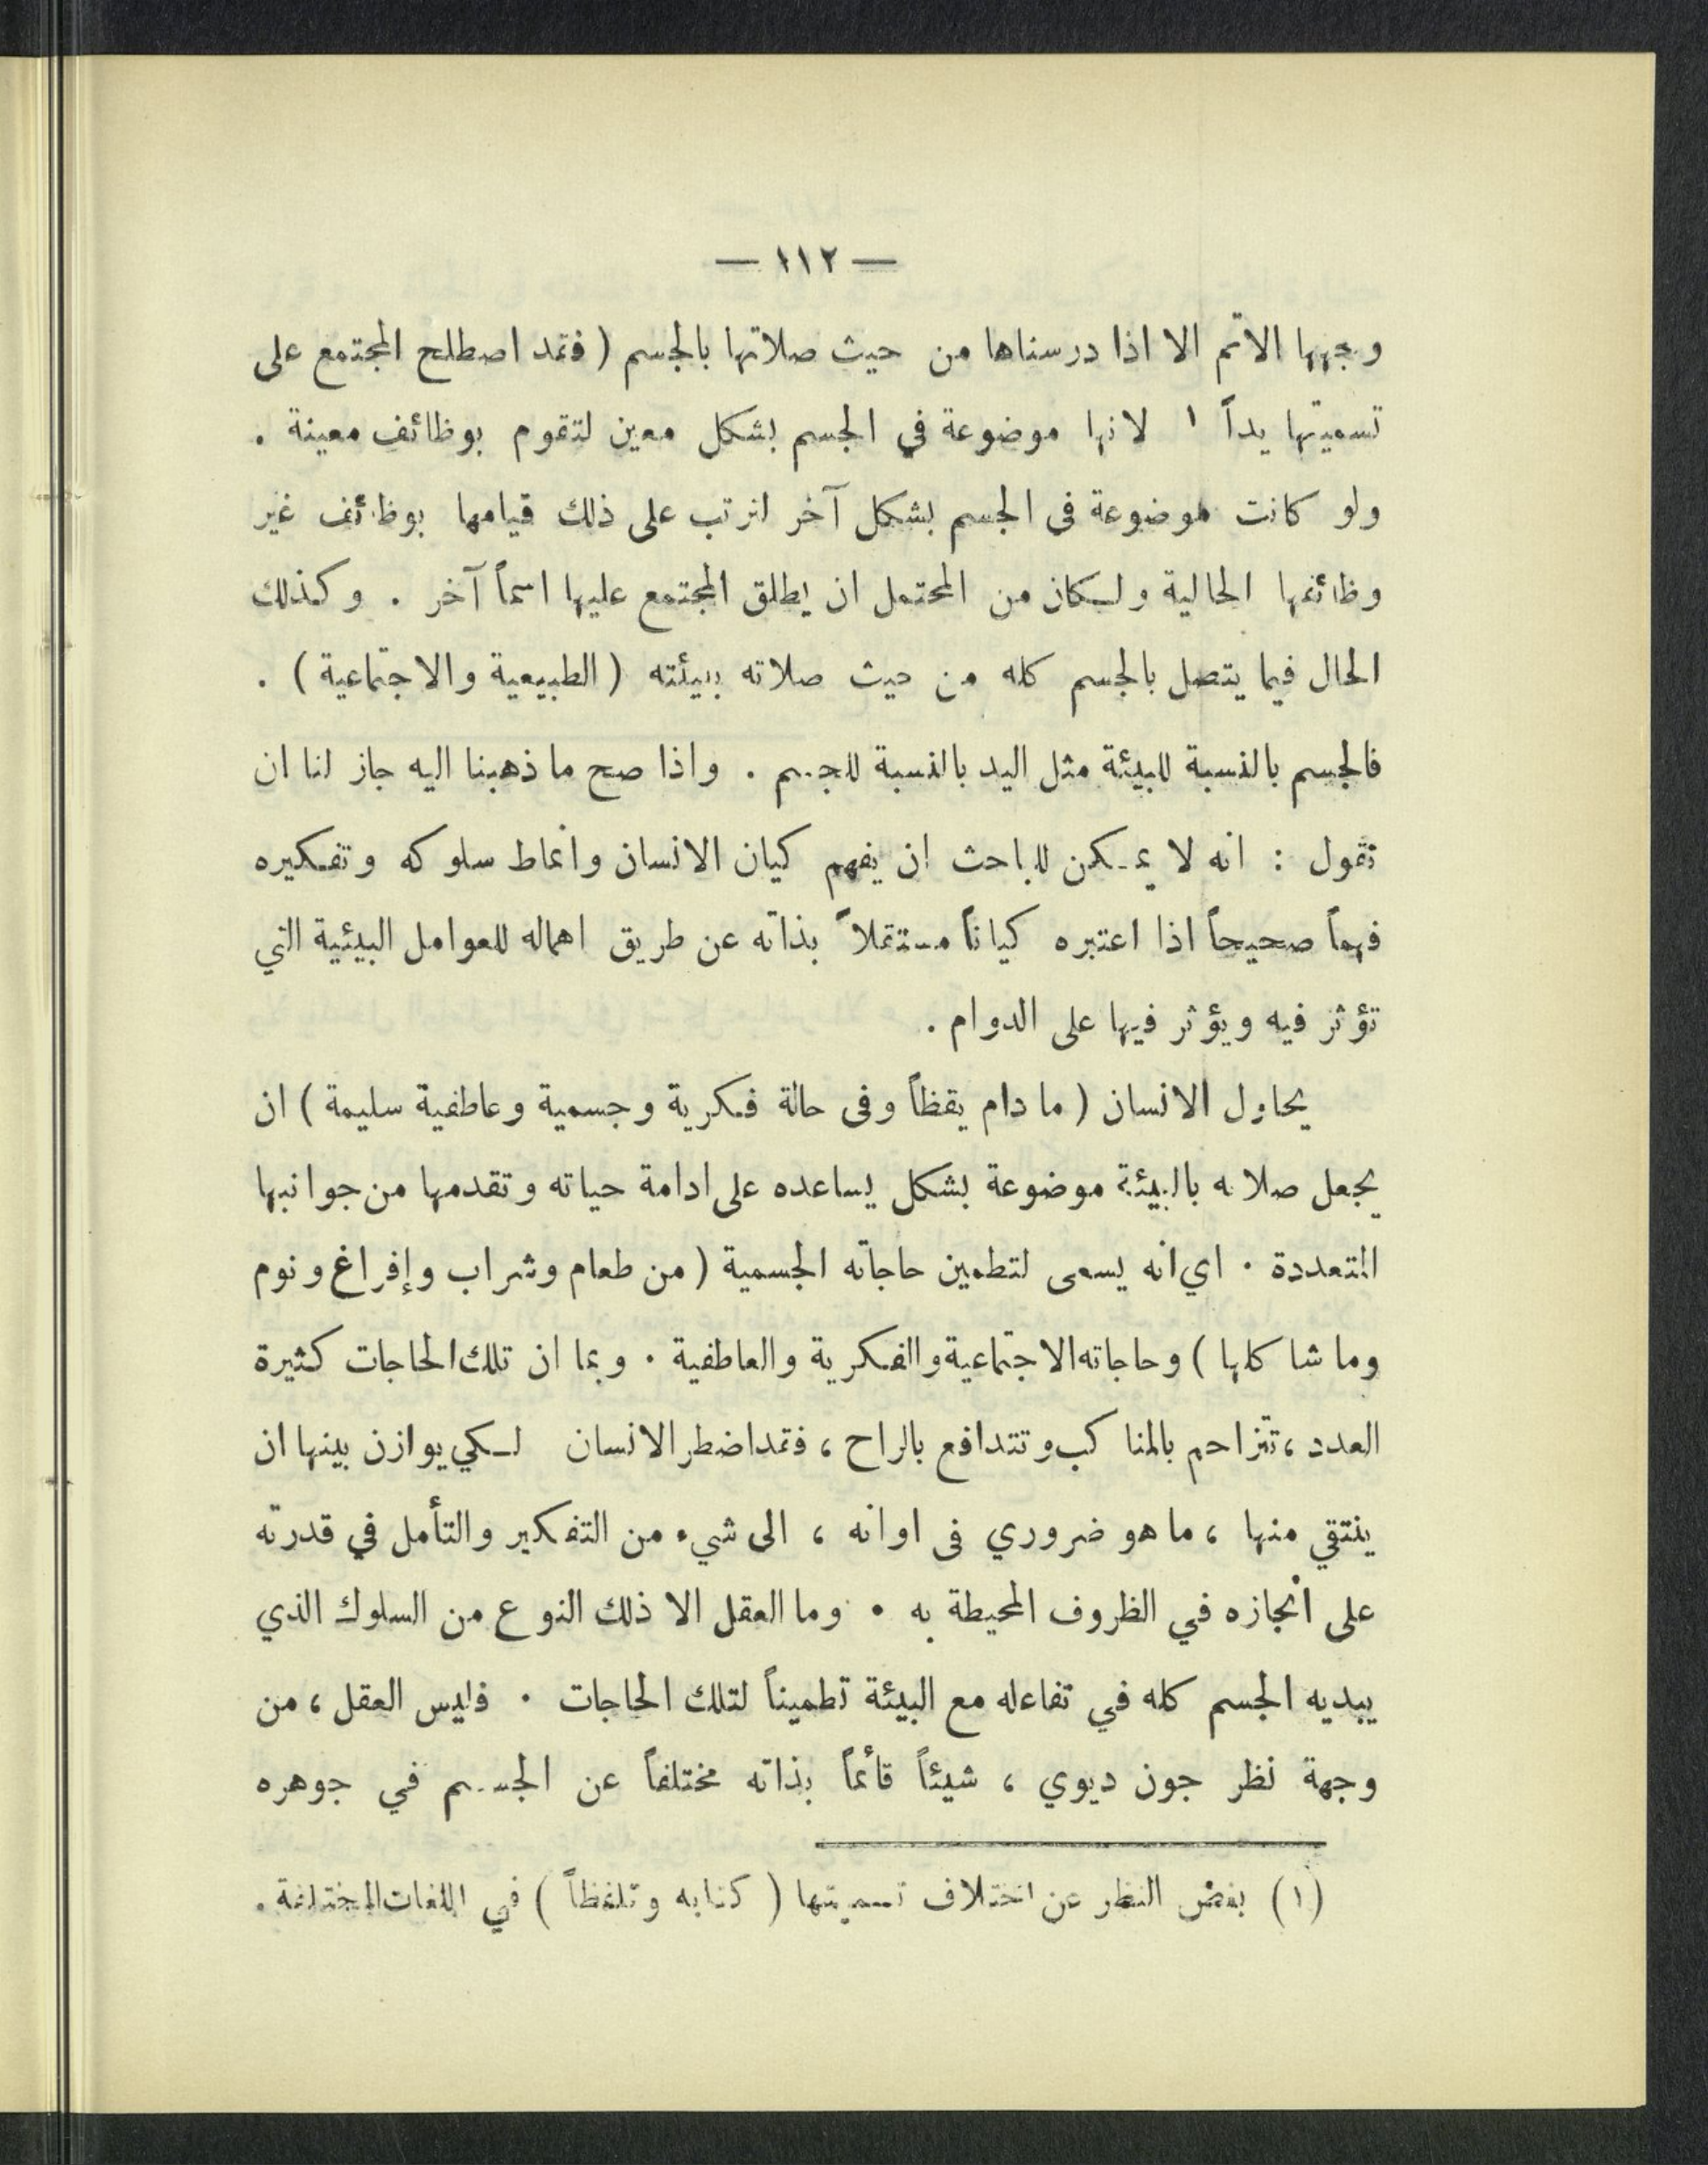 — ١١٢ —
وجهها الاتم الا اذا درسناها من حيث صلاتها بالجسم ( فقد اصطلح المجتمع على
تسميتها يداً ١ لانها موضوعة في الجسم بشكل معين لتقوم بوظائف معينة .
ولو كانت موضوعة فى الجسم بشكل آخر لترتب على ذلك قيامها بوظائف غير
وظائفها الحالية ولكان من المحتمل ان يطلق المجتمع عليها اسماً آخر . وكذلك
الحال فيما يتصل بالجسم كله من حيث صلاته ببيئته ( الطبيعية والاجتماعية ) .
فالجسم بالنسبة للبيئة مثل اليد بالنسبة للجسم . واذا صح ما ذهبنا اليه جاز لنا ان
نقول : انه لا يمكن للباحث ان يفهم كيان الانسان وانماط سلوكه وتفكيره
فهماً صحيحاً اذا اعتبره كياناً مستقلاً بذاته عن طريق اهماله للعوامل البيئية التي
تؤثر فيه ويؤثر فيها على الدوام .
يحاول الانسان ( ما دام يقظاً وفى حالة فكرية وجسمية وعاطفية سليمة ) ان
يجعل صلاته بالبيئة موضوعة بشكل يساعده على ادامة حياته وتقدمها من جوانبها
المتعددة . اي انه يسعى لتطمين حاجاته الجسمية ( من طعام وشراب وإفراغ ونوم
وما شاكلها ) وحاجاته الاجتماعية والفكرية والعاطفية . وبما ان تلك الحاجات كثيرة
العدد ، تتزاحم بالمناكب وتتدافع بالراح ، فقد اضطر الانسان لكي يوازن بينها ان
ينتقي منها ، ما هو ضروري فى اوانه ، الى شيء من التفكير والتأمل في قدرته
على انجازه في الظروف المحيطة به . وما العقل الا ذلك النوع من السلوك الذي
يبديه الجسم كله في تفاعله مع البيئة تطميناً لتلك الحاجات . فليس العقل ، من
وجهة نظر جون ديوي ، شيئاً قائماً بذاته مختلفاً عن الجسم في جوهره
(١) بغض النظر عن اختلاف تسميتها ( كتابه وتلفظاً ) في اللغات المختلفة .